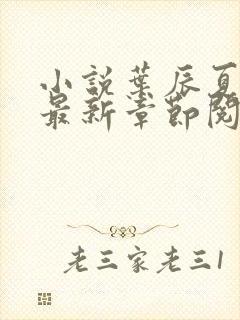 小説葉辰夏
最新章節閱
老三家老三1